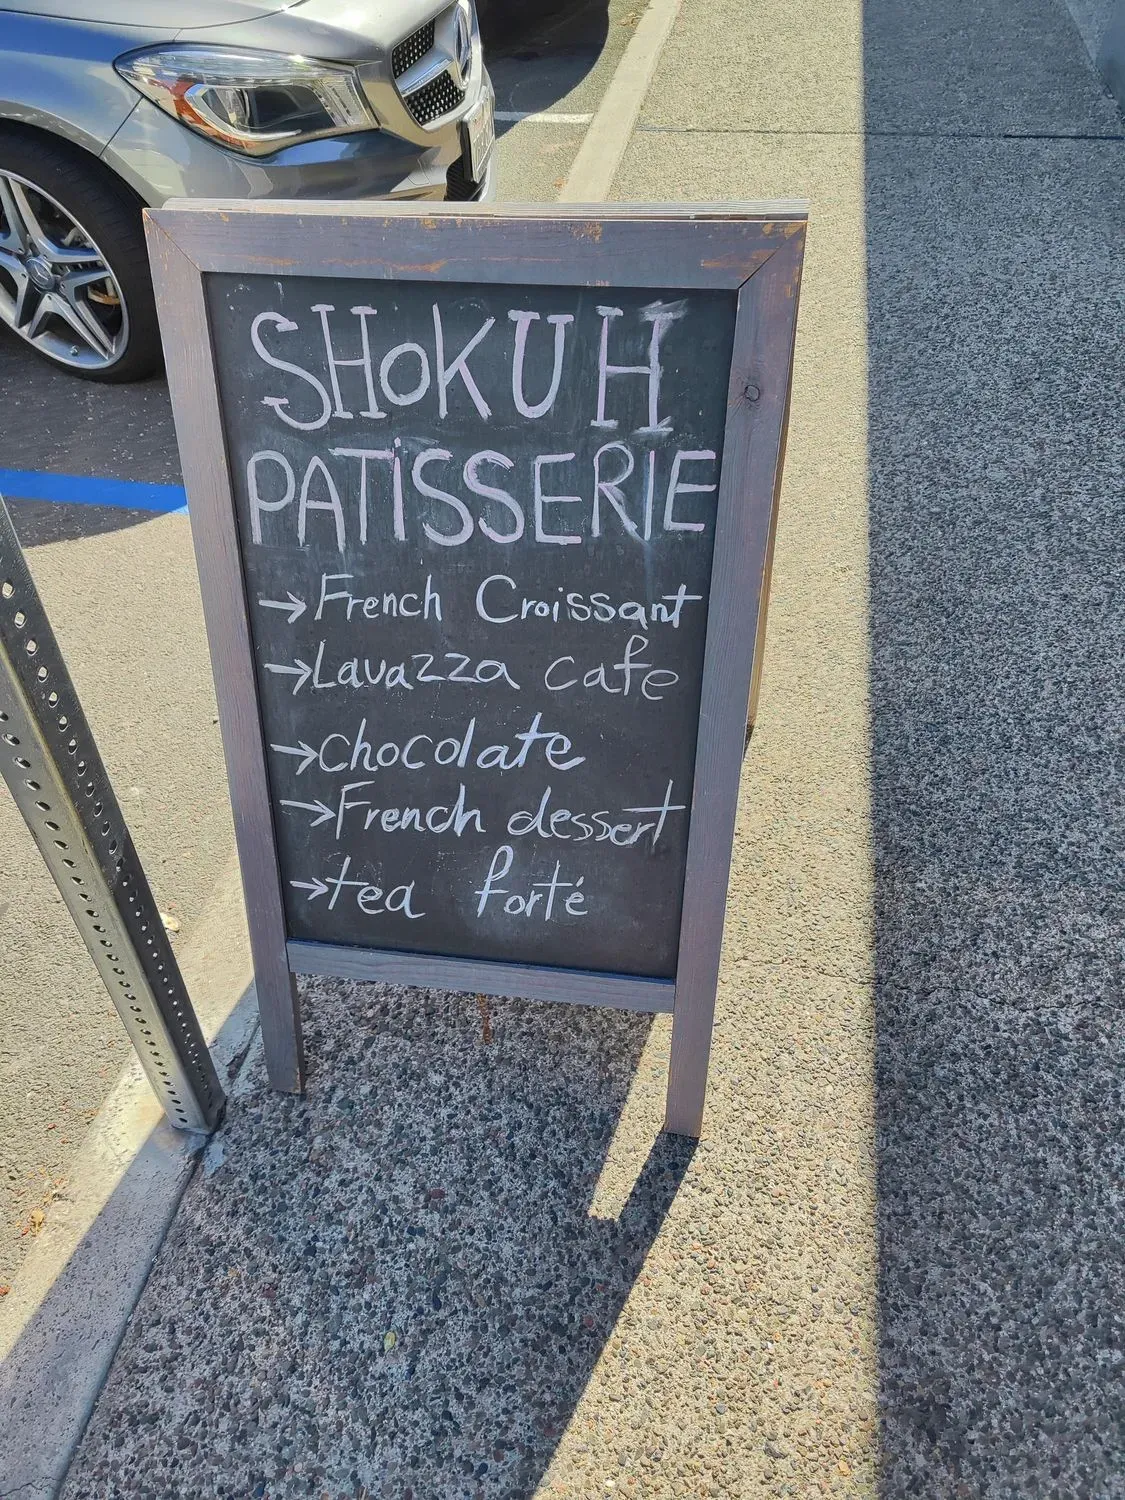 SHOKUH
PATiSSERIE
→French Croissant
→Lavazza cafe
→chocolate
→French dessert
→tea forté